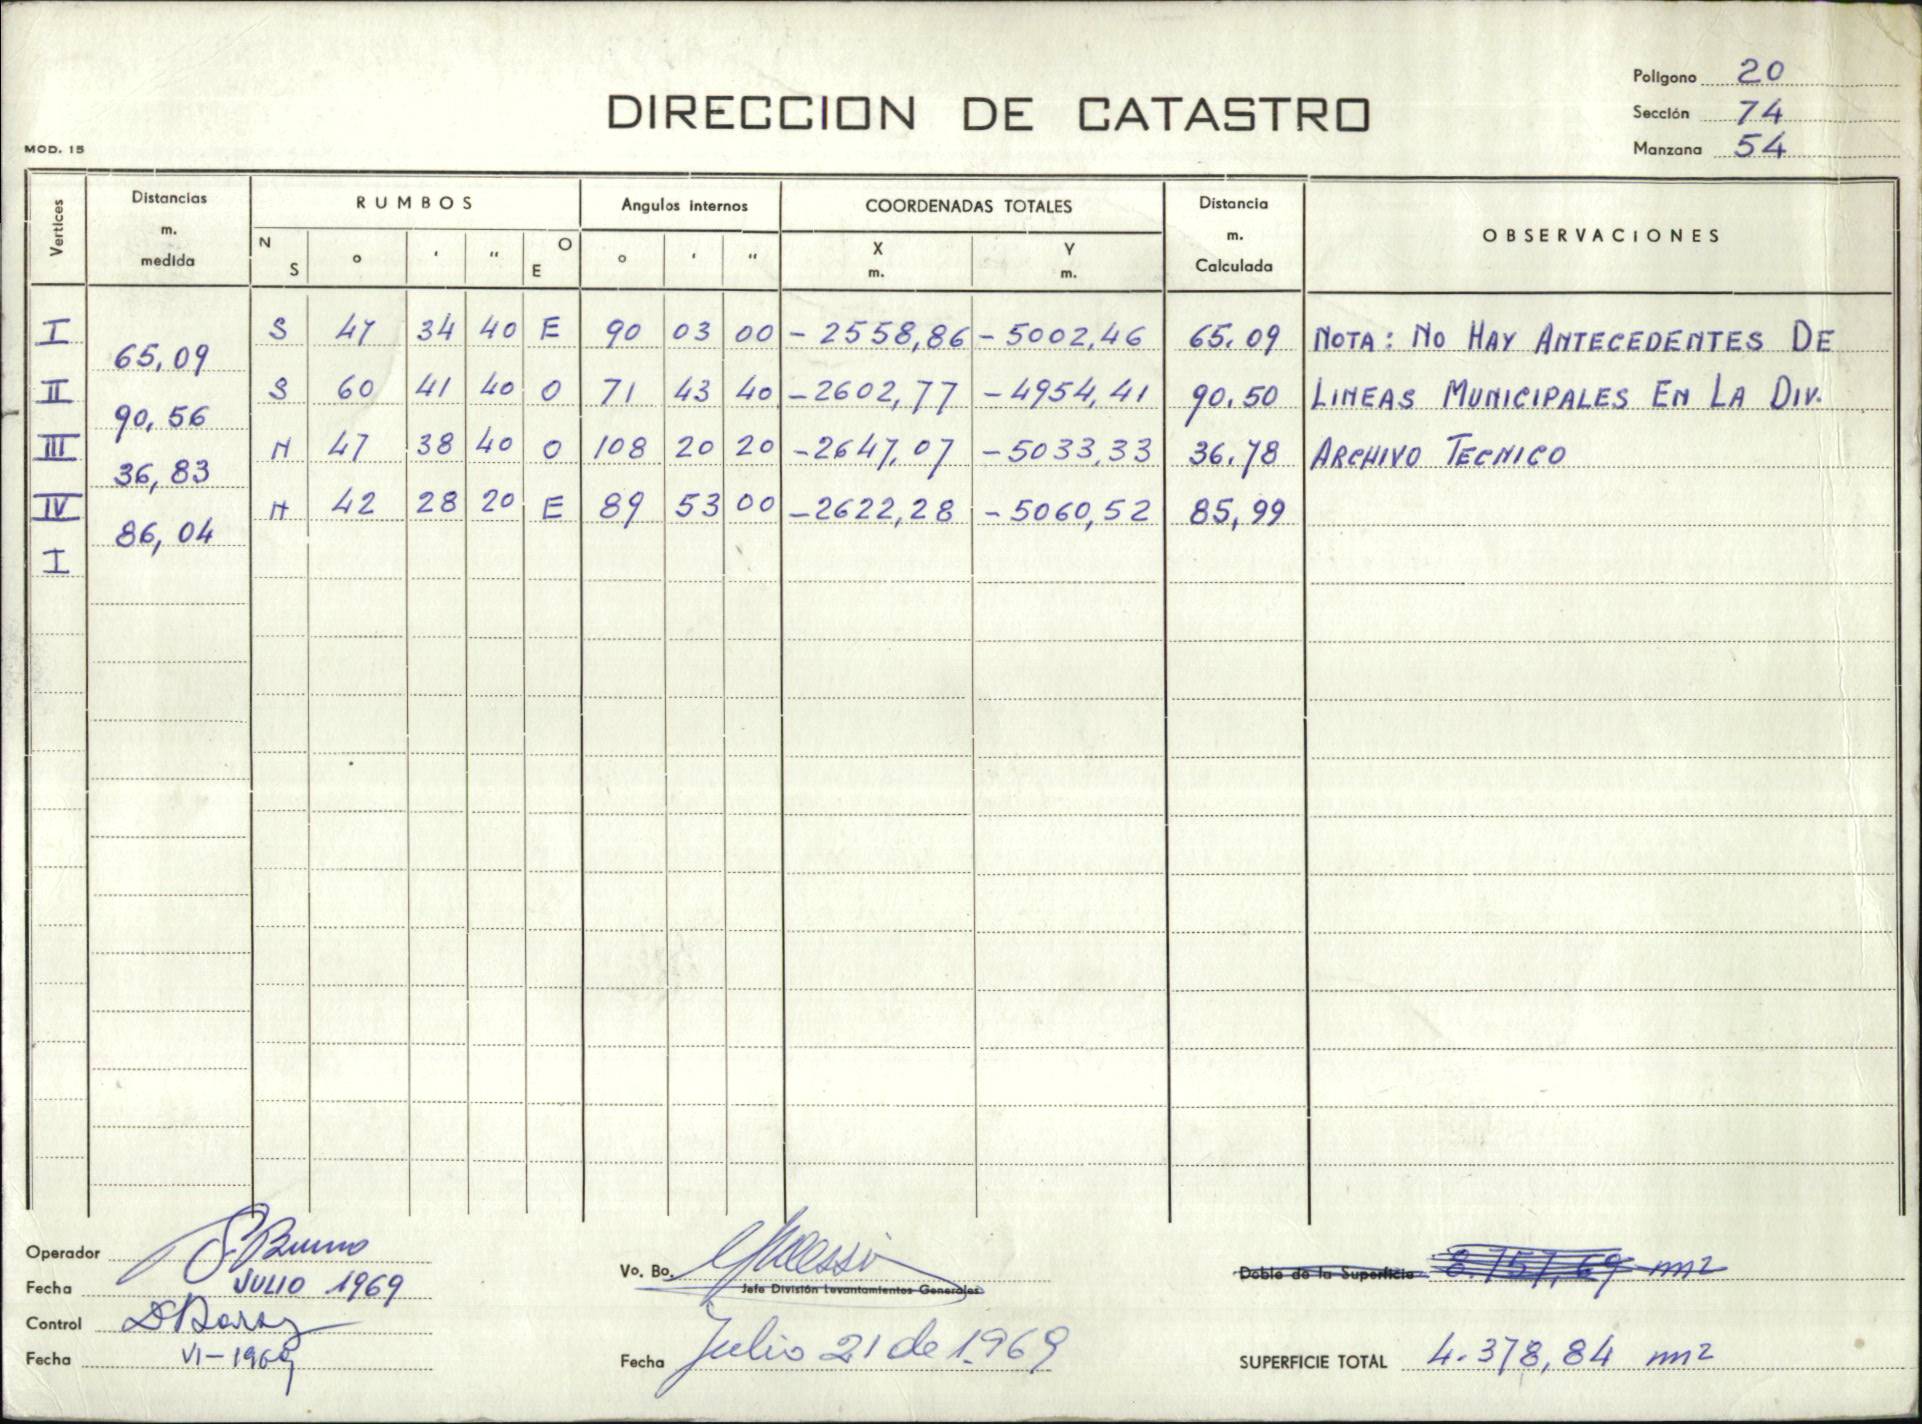 Polígono 20
DIRECCION DE CATASTRO
Sección 74
MOD. 15
Manzana 54
Vertices Distancias m. medida RUMBOS Angulos internos COORDENADAS TOTALES Distancia m. Calculada OBSERVACIONES
N S ° ' " O E ° ' " X m. Y m.
I S 47 34 40 E 90 03 00 -2558,86 -5002,46 65.09 NOTA: NO HAY ANTECEDENTES DE
65,09
II S 60 41 40 O 71 43 40 -2602,77 -4954,41 90.50 LINEAS MUNICIPALES EN LA DIV.
90,56
III N 47 38 40 O 108 20 20 -2647,07 -5033,33 36.78 ARCHIVO TECNICO
36,83
IV N 42 28 20 E 89 53 00 -2622,28 -5060,52 85,99
86,04
I
Operador S. Bruno
Fecha JULIO 1969
Control
Fecha VI-1969
Vo. Bo.
Jefe División Levantamientos Generales
Fecha Julio 21 de 1969
Doble de la Superficie 8.757,69 m2
SUPERFICIE TOTAL 4.378,84 m2